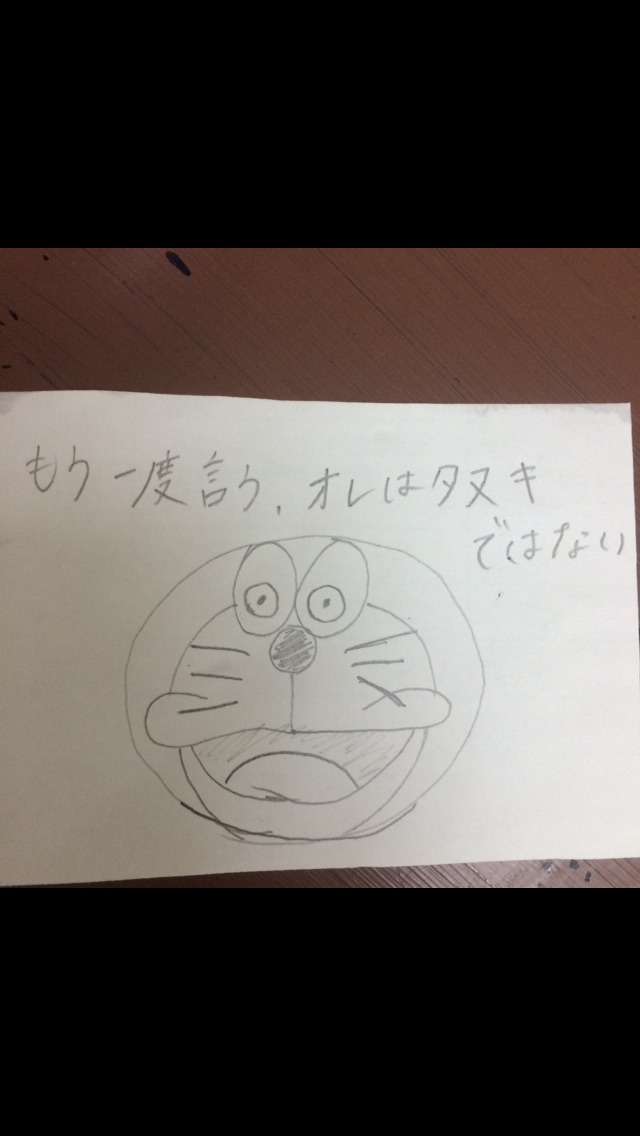 もう一度言う、オレはタヌキ
ではない